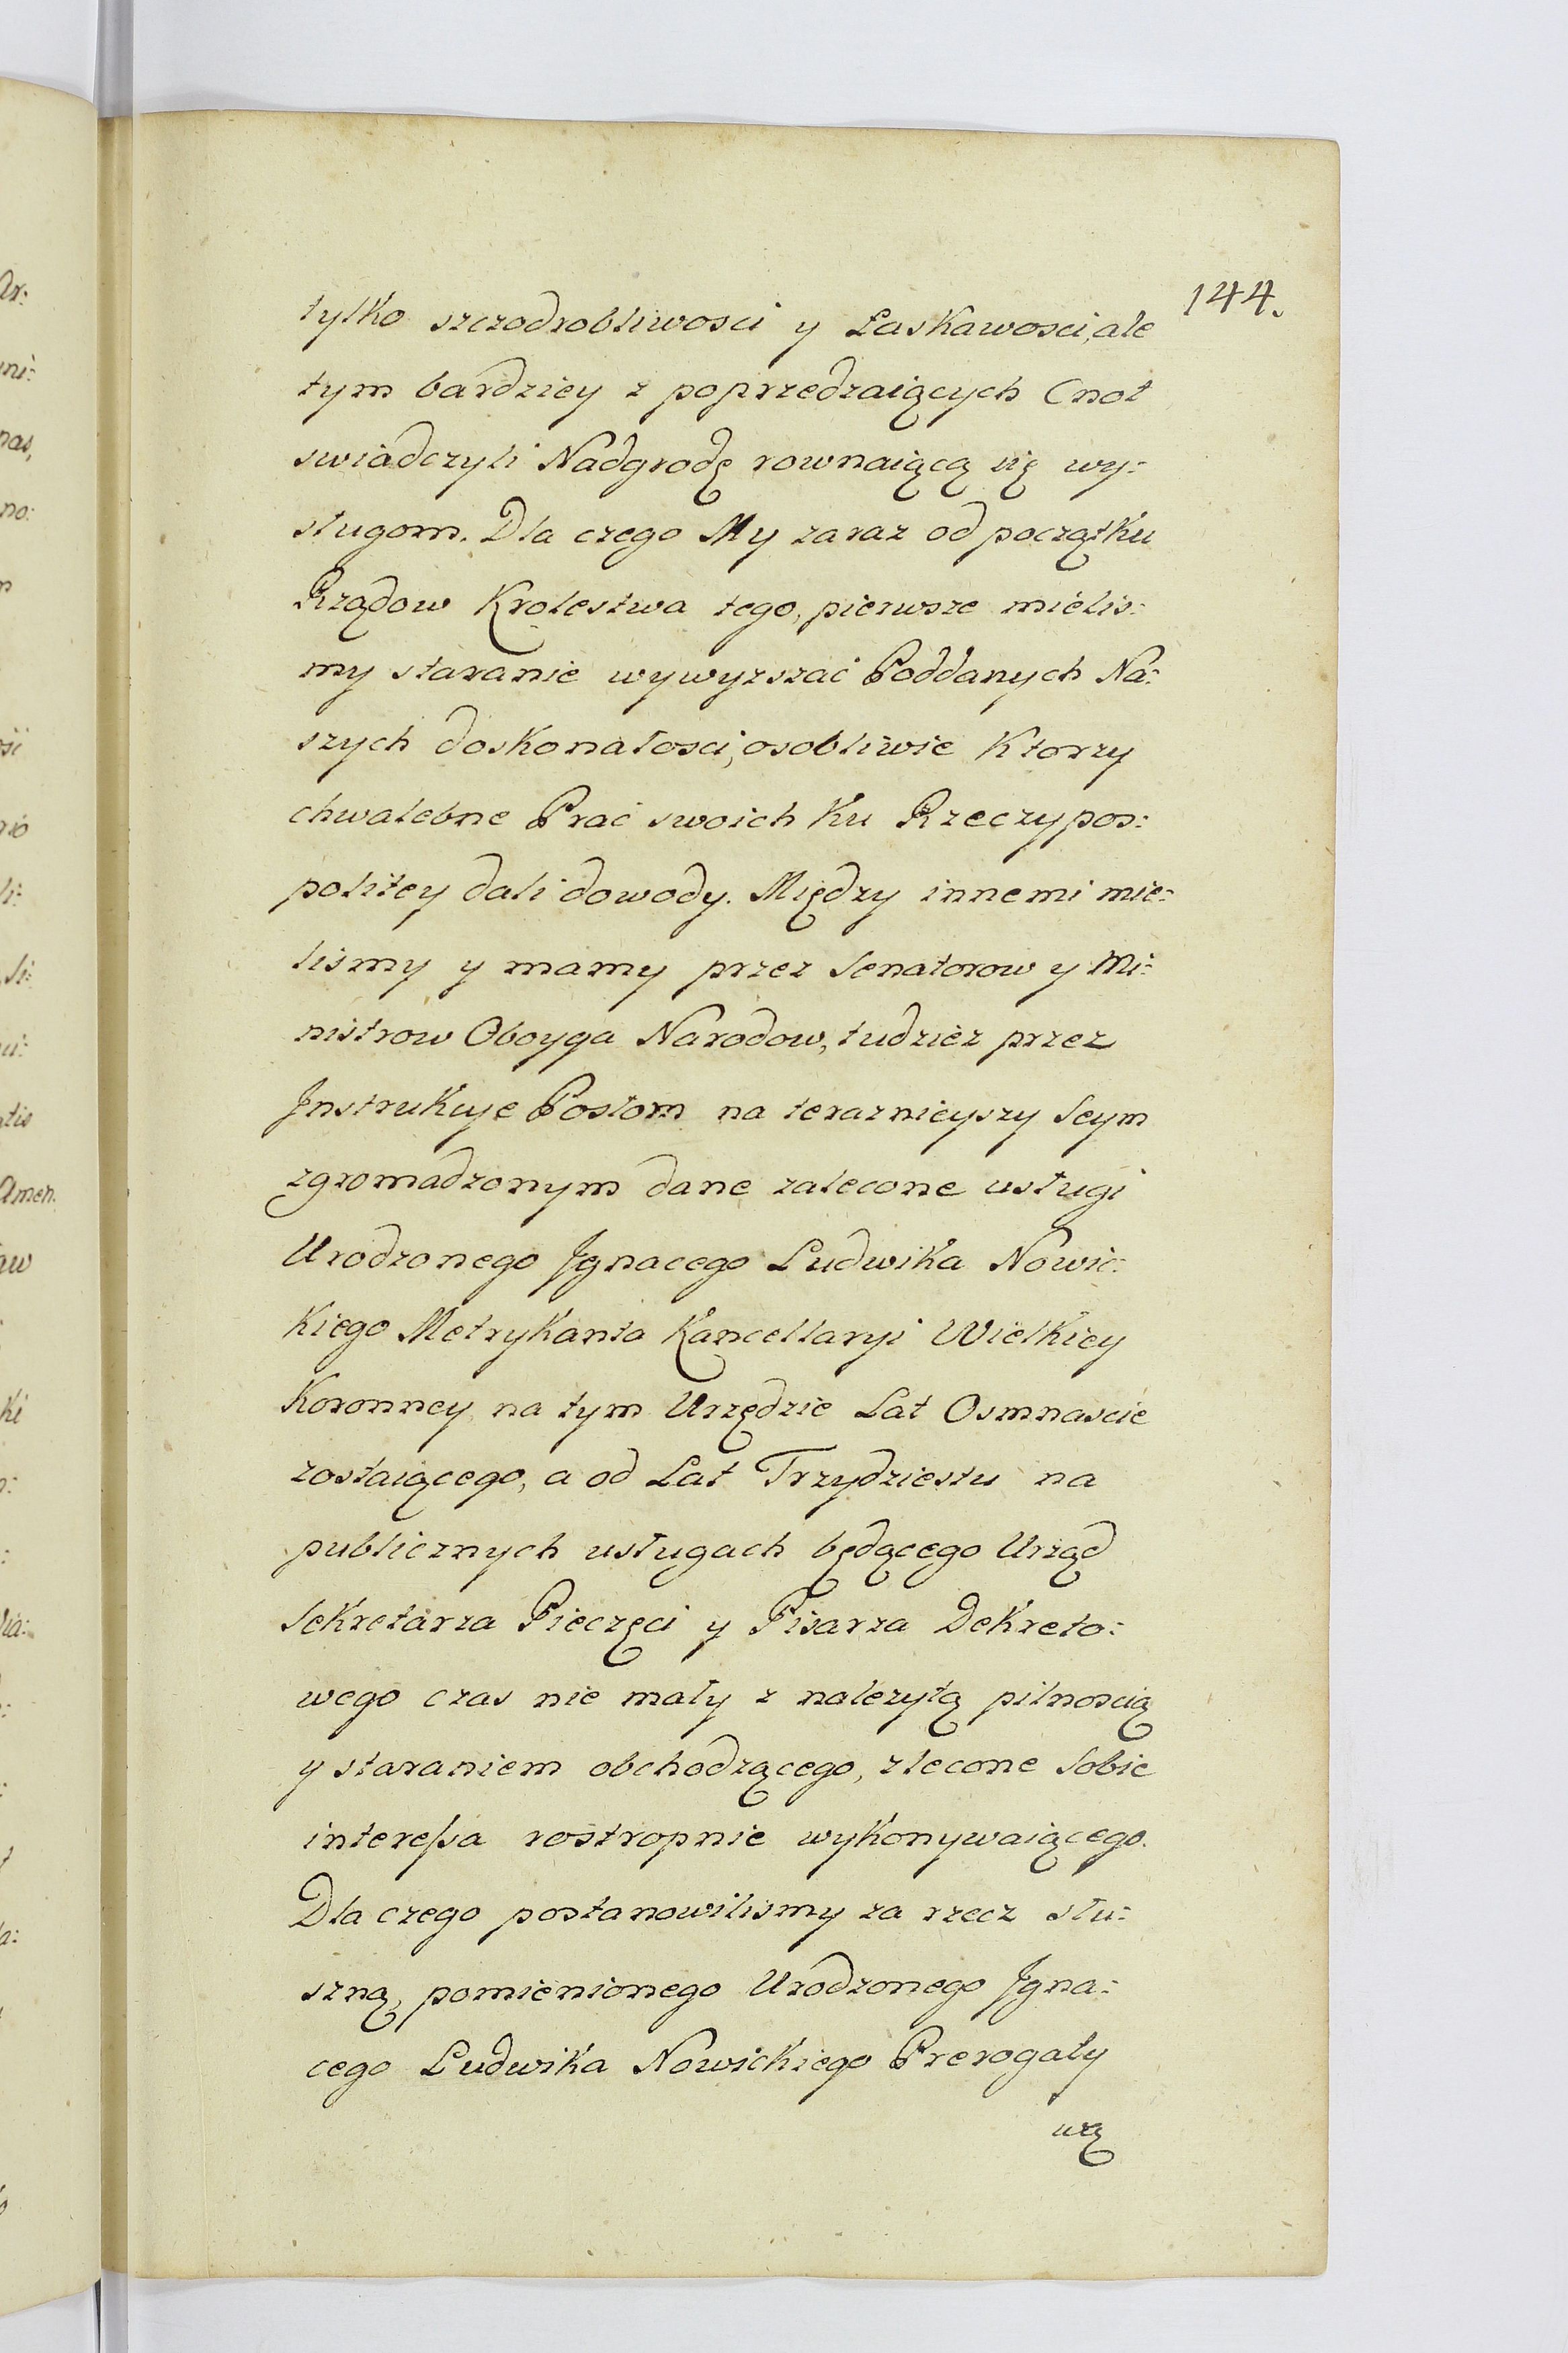 144.
tylko szczodrobliwosci y Łaskawosci, ale
tym bardziey z poprzedzaiących Cnot
swiadczyli Nadgrodę rownaiącą się wy:
sługom. Dla czego My zaraz od początku
Rządow Krolestwa tego, pierwsze mielis:
my staranie wywyzszać Poddanych Na:
szych doskonałosci, osobliwie Ktorzy
chwalebne Prac swoich Ku Rzeczypos:
politey dali dowody. Między innemi mie:
lismy y mamy przez Senatorow y Mi:
nistrow Oboyga Narodow, tudziez przez
Jnstrukcye Posłom na teraznieyszy Seym
zgromadzonym dane zalecone usługi
Urodzonego Jgnacego Ludwika Nowic:
kiego Metrykanta Kancellaryi Wielkiey
Koronney na tym Urzędzie Lat Osmnascie
zostaiącego, a od Lat Trzydziestu na
publicznych usługach będącego Urząd
Sekretarza Pieczęci y Pisarza Dekreto:
wego czas nie mały z nalezytą pilnoscią
y staraniem obchodzącego, zlecone Sobie
interessa rostropnie wykonywaiącego.
Dla czego postanowilismy za rzecz słu:
szną, pomienionego Urodzonego Jgna:
cego Ludwika Nowickiego Prerogaty
urą